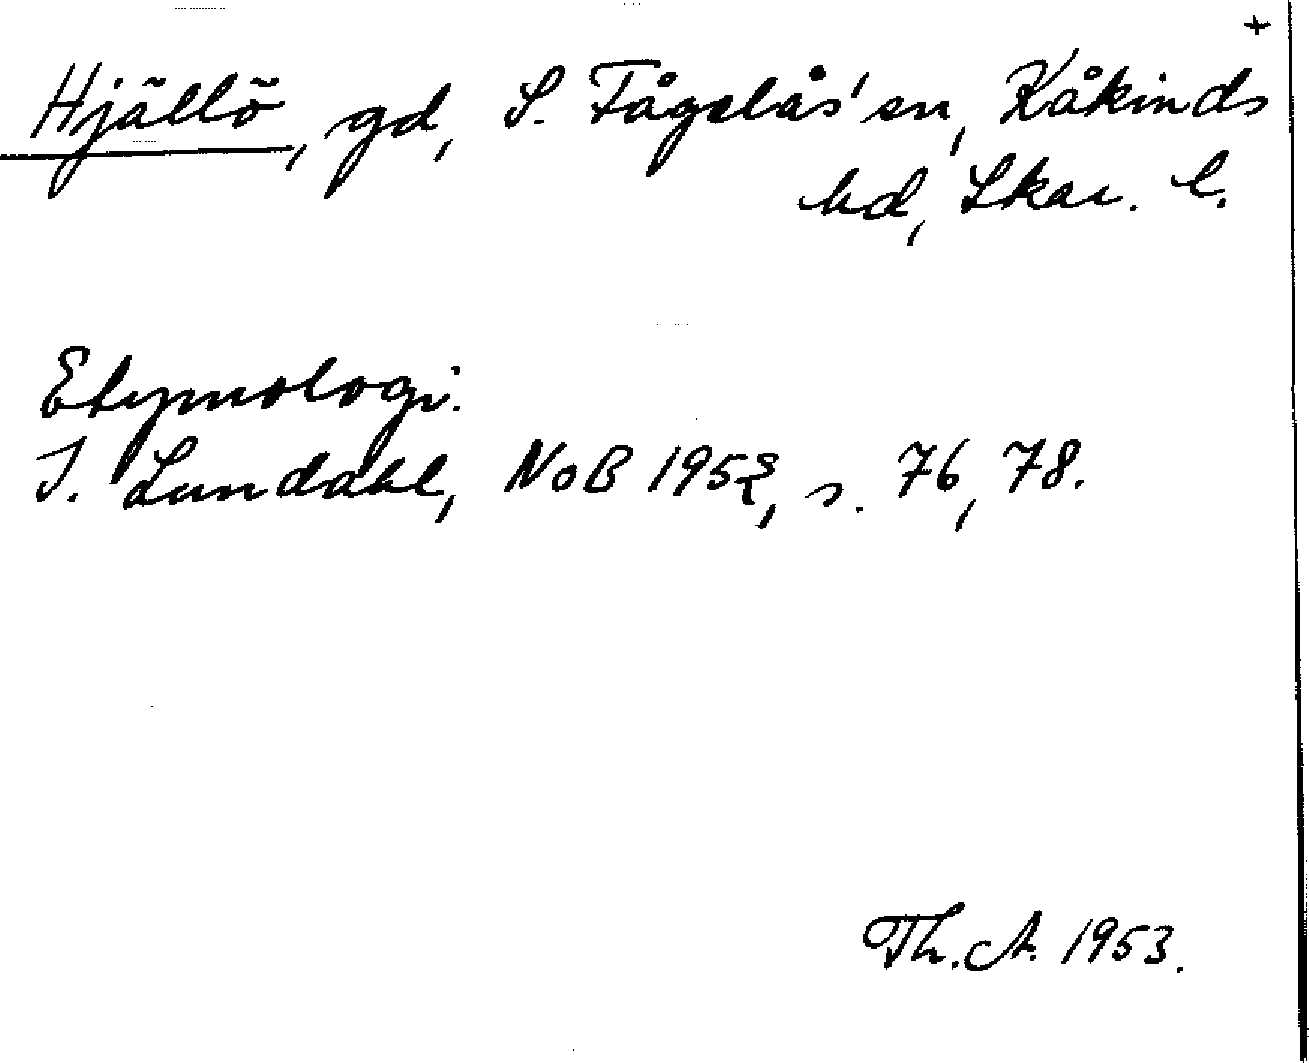 +
Hjällö, gd, S. Fågelås' sn, Kåkinds
hd, Skar. l.
Etymologi.
I. Lundahl, NoB 1952, s. 76, 78.
Th. A. 1953.